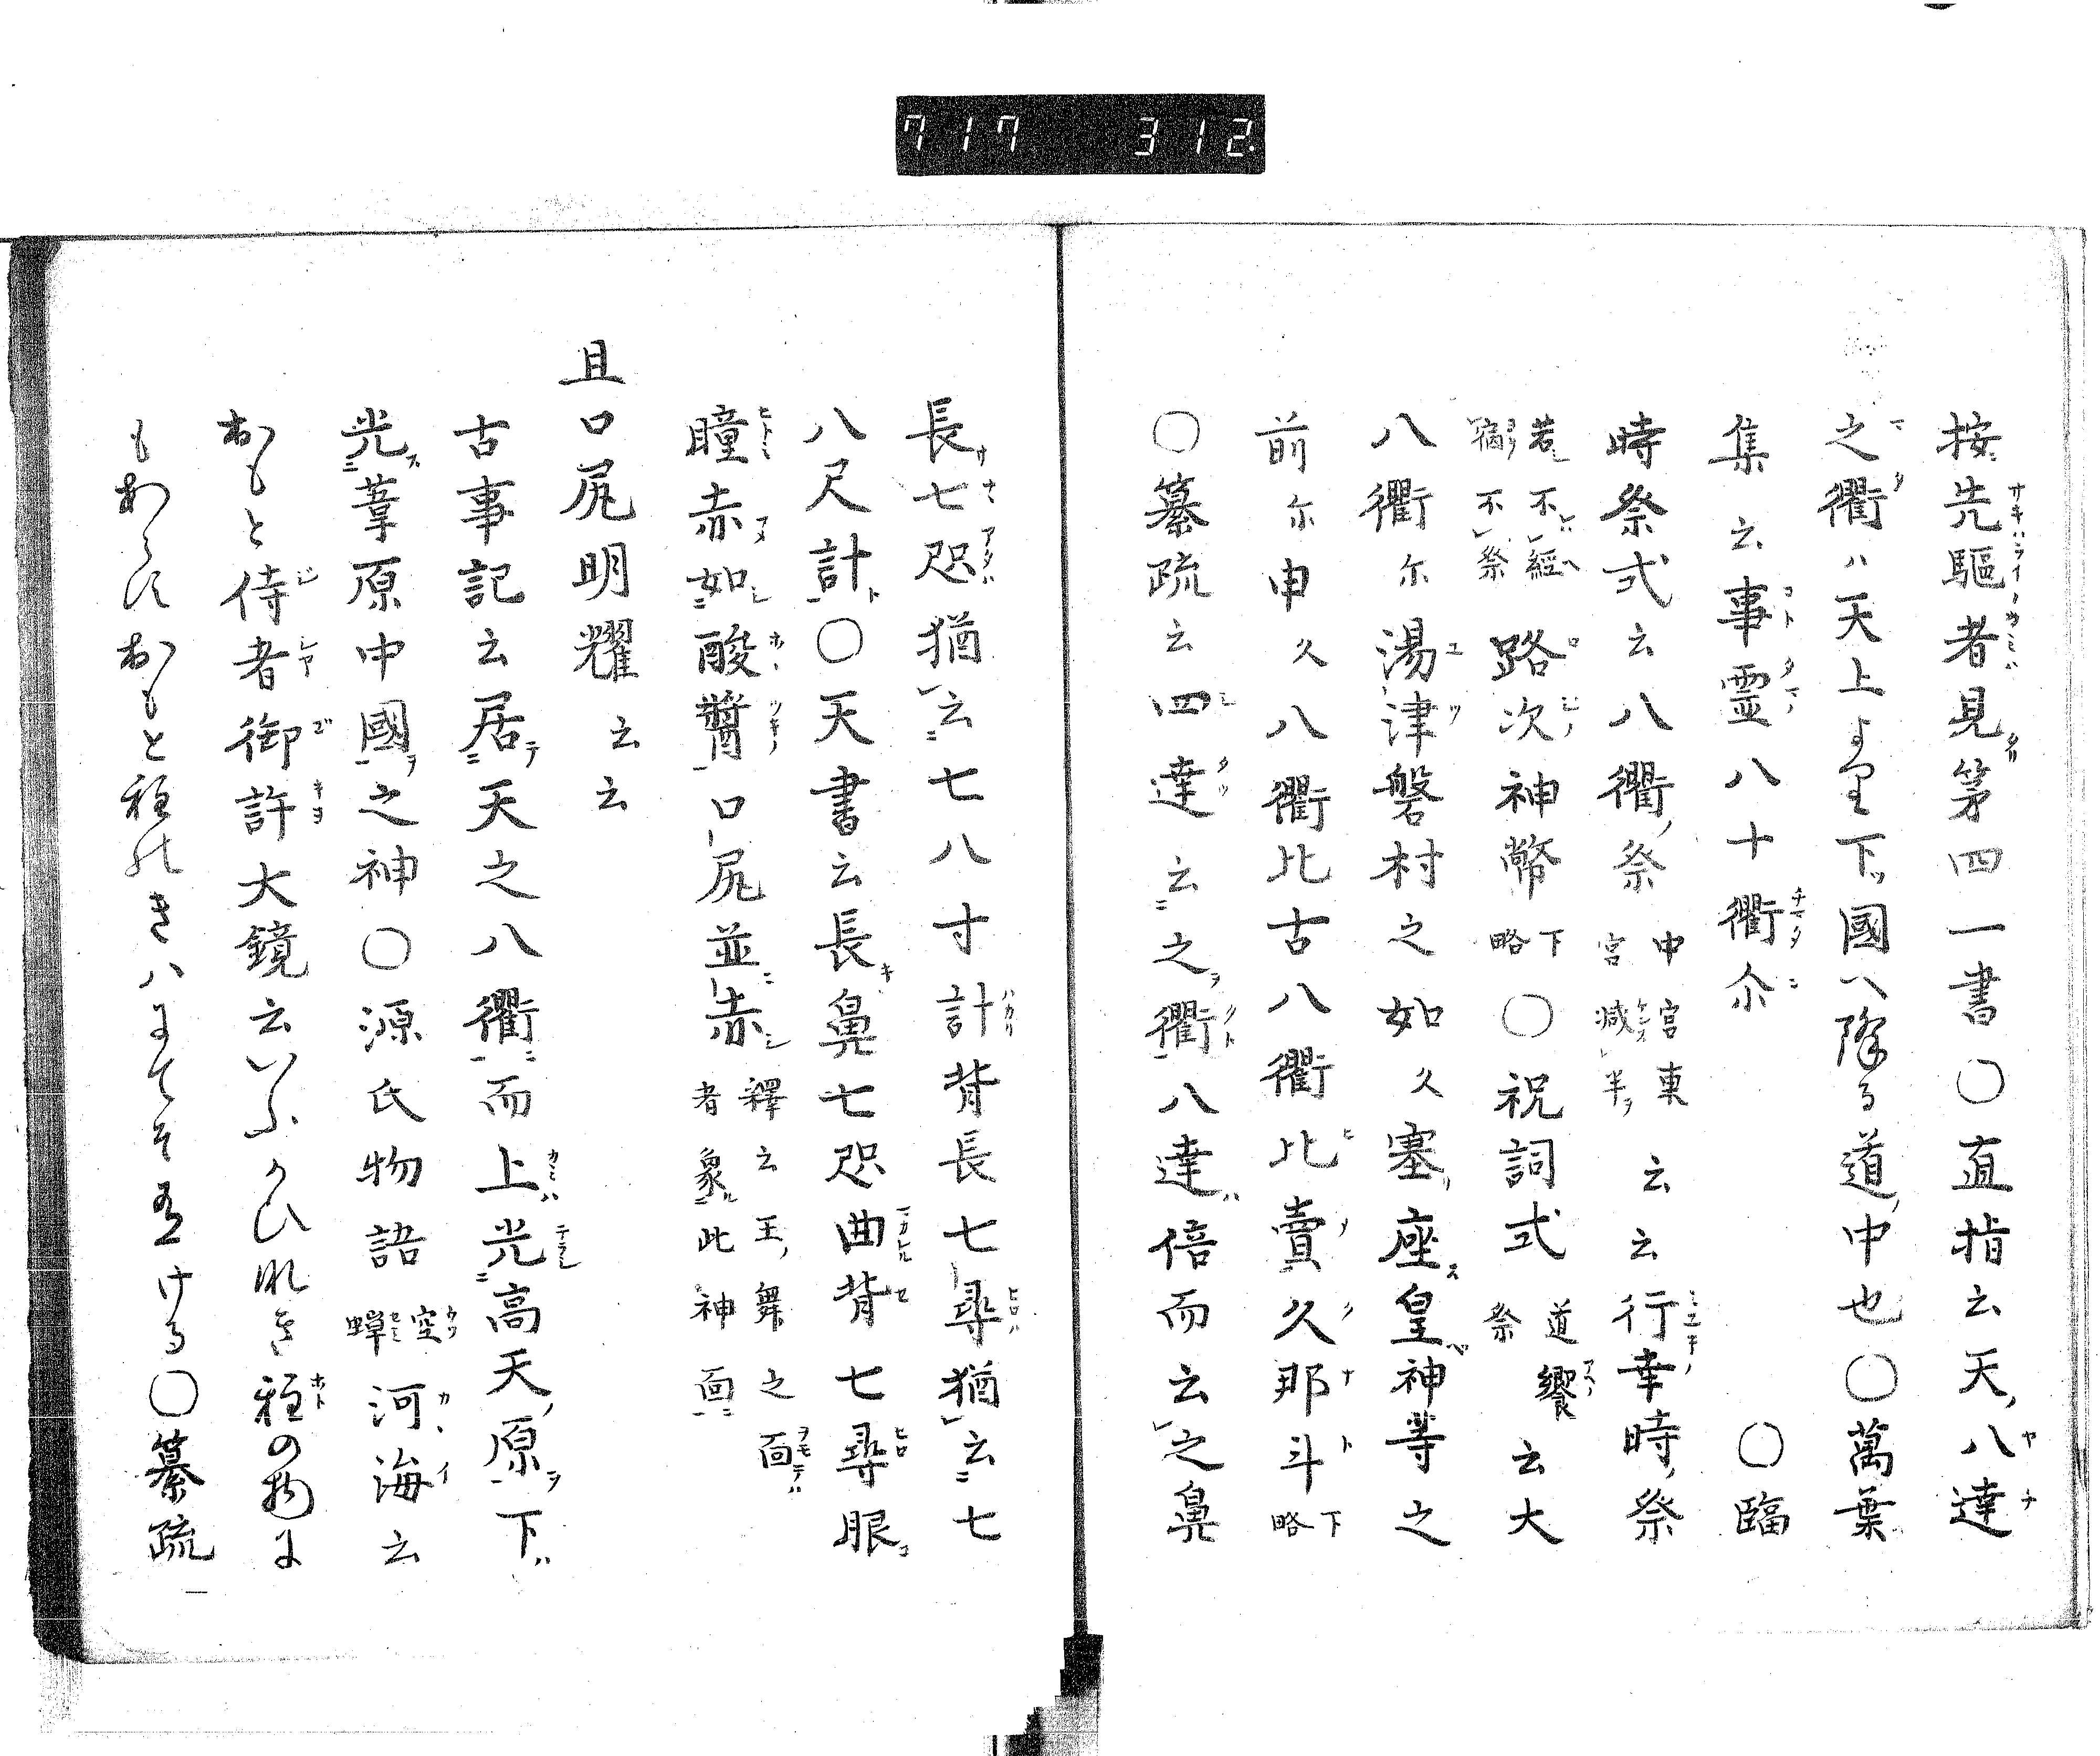 717 312
按先驅者見第四一書○直指云天八達
之衢ハ天上より下國へ降る道中也○萬葉
集云事霊八十衢尓 ○臨
時祭式云八衢祭中宮東宮減半云云行幸時祭
若不經宿不祭路次神幣下略○祝詞式道饗祭云大
八衢尓湯津磐村之如久塞座皇神等之
前尓申久八衢比古八衢比賣久那斗下略
○纂疏云四達云之衢八達倍而云之鼻
長七咫猶云七八寸計背長七尋猶云七
八尺計○天書云長鼻七咫曲背七尋眼
瞳赤如酸醬口尻並赤釋云王舞之面者象此神面
且口尻明耀云云
古事記云居天之八衢而上光高天原下
光葦原中國之神○源氏物語空蟬河海云
おもと侍者御許大鏡云いふかひなき程の物に
もあらすおもと程のきハにてそ ける○纂疏